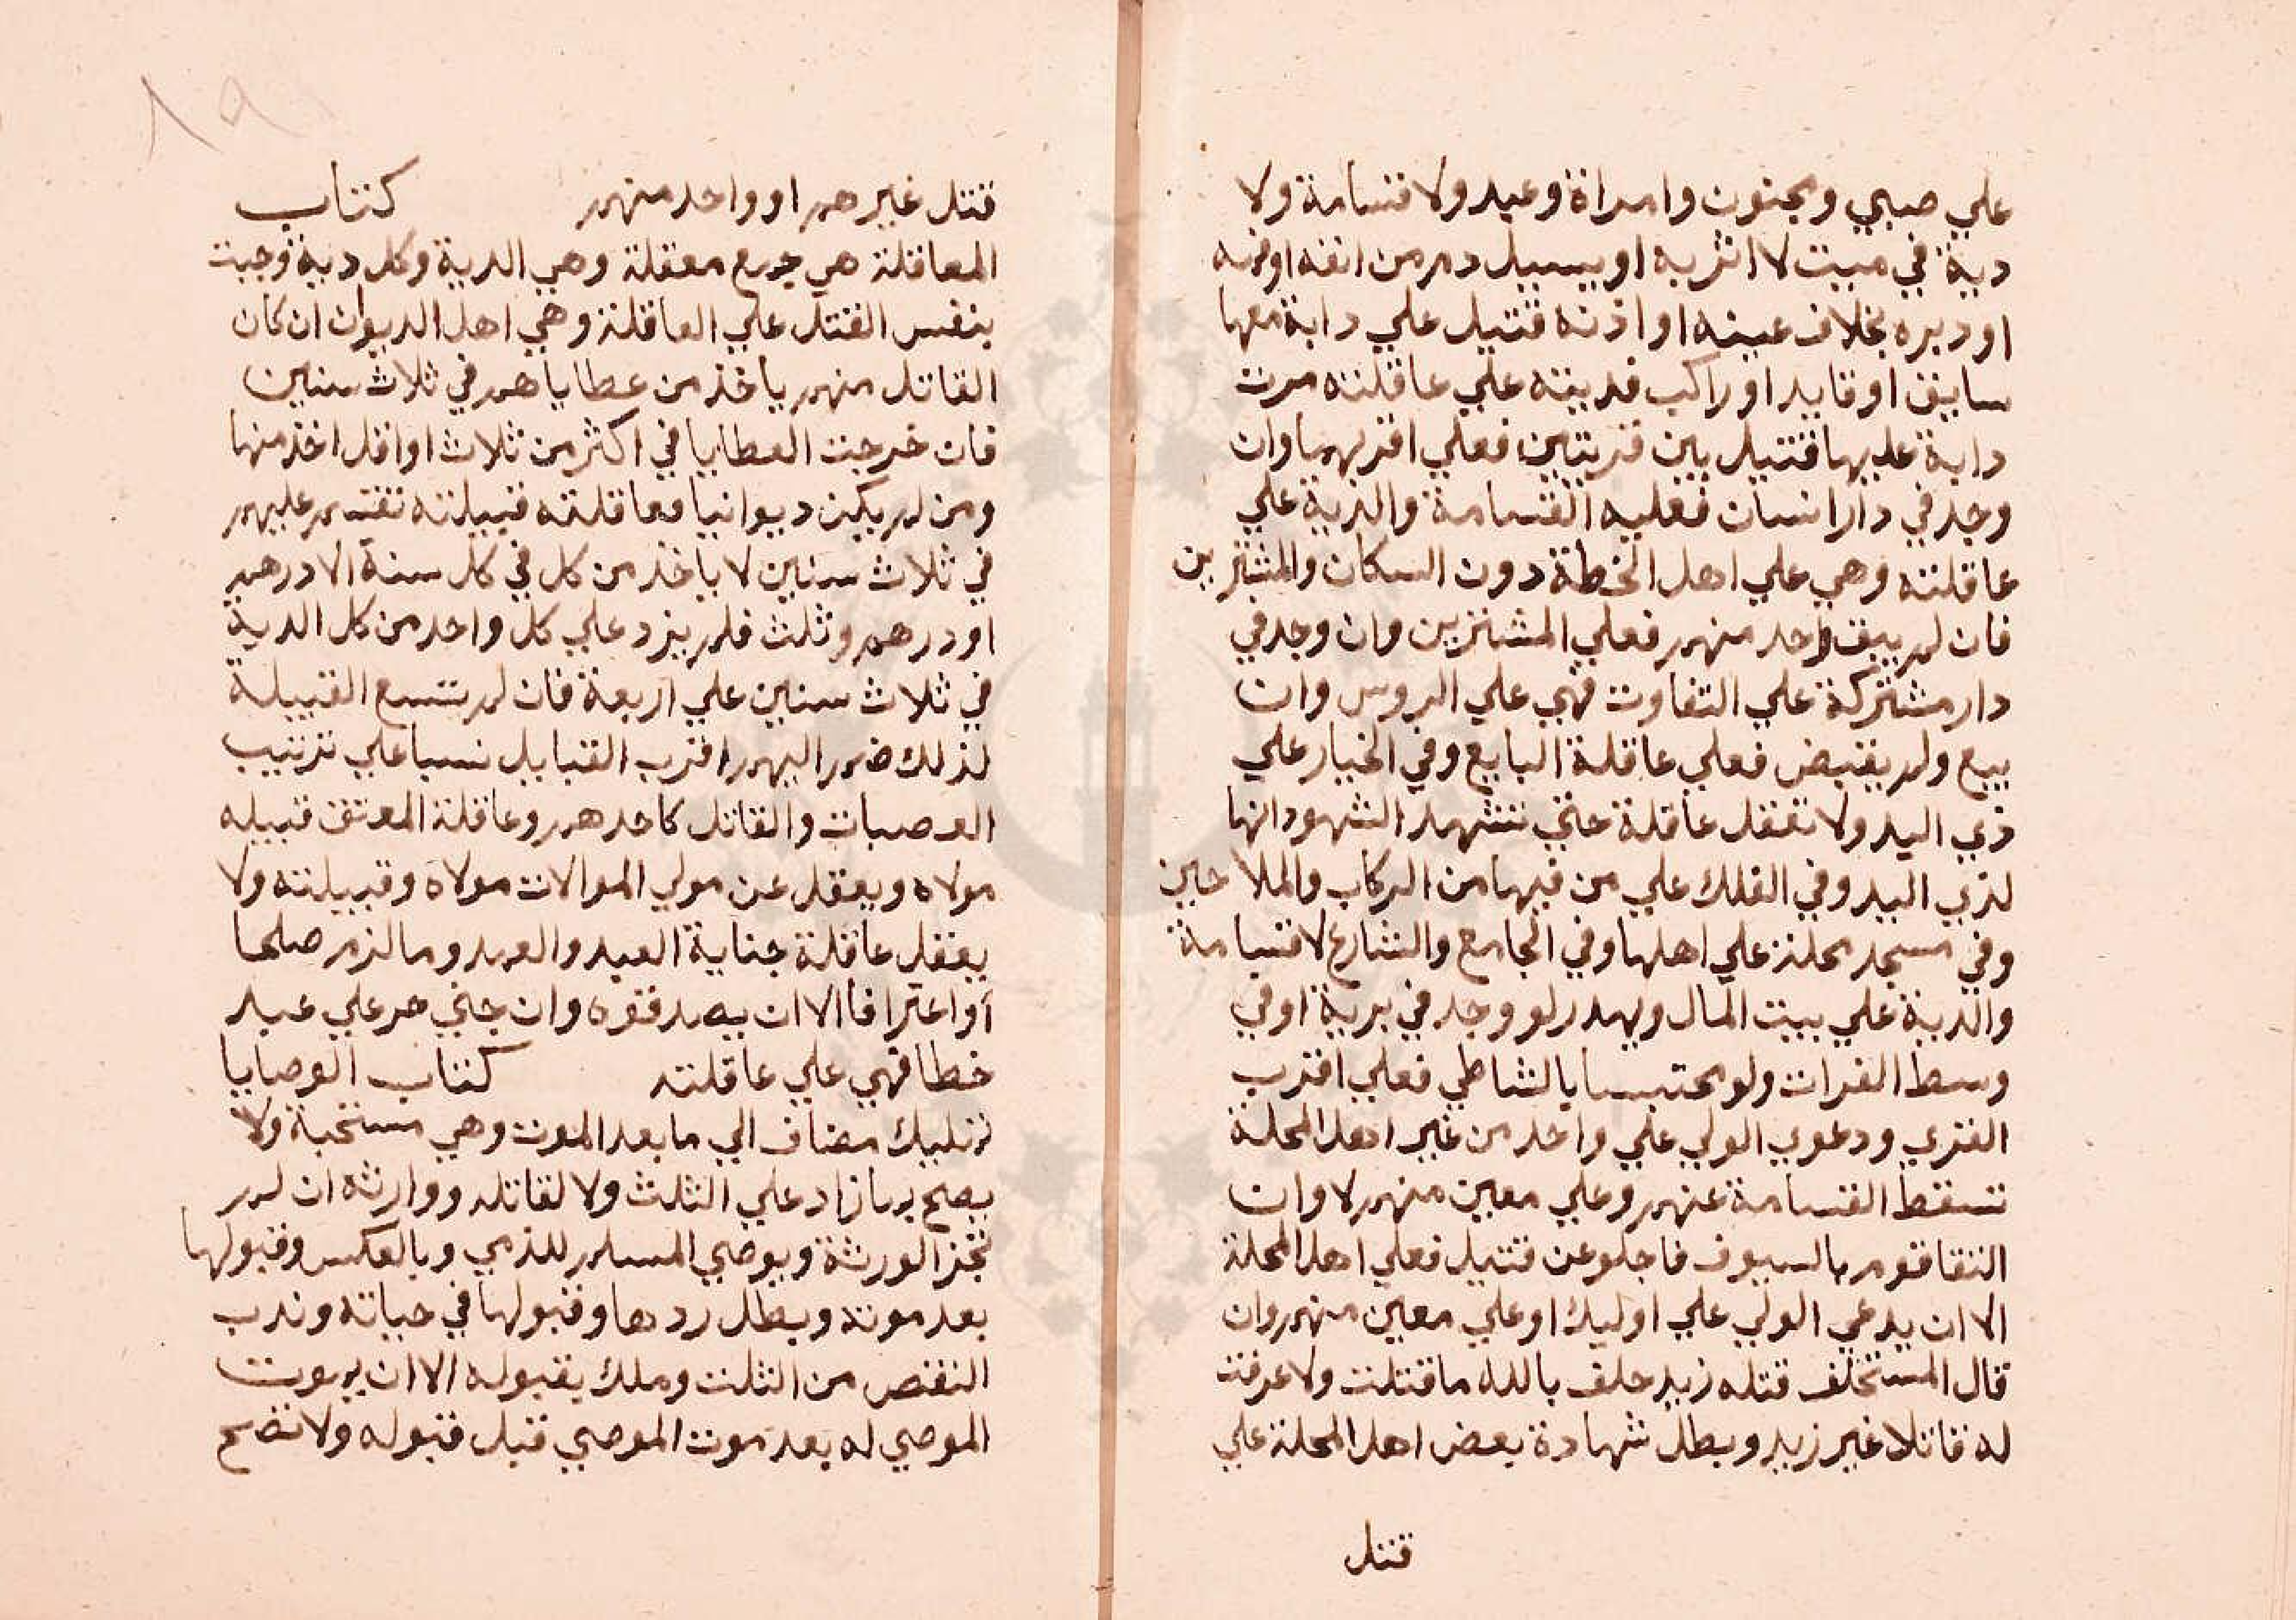 علي صبي ومجنون وامراة وعبد ولا قسامة ولا
دية في ميت لا اثر به او يسيل دم من انفه او فمه
او دبره بخلاف عينه او اذنه قتيل علي دابة معها
سايق او قايد او راكب فديته علي عاقلته مرت
دابة عليها قتيل بين قريتين فعلي اقربهما وان
وجد في دار انسان فعليه القسامة والدية علي
عاقلته وهي علي اهل الخطة دون السكان والمشترين
فان لم يبق واحد منهم فعلي المشترين وان وجد في
دار مشتركة علي التفاوت فهي علي الروس وان
بيع ولم يقبض فعلي عاقلة البايع وفي الخيار علي
ذي اليد ولا تعقل عاقلة حتي تشهد الشهود انها
لذي اليد وفي الفلك علي من فيها من الركاب والملاحين
وفي مسجد محلة علي اهلها وفي الجامع والشارع لا قسامة
والدية علي بيت المال ويهدر لو وجد في برية او في
وسط الفرات ولو محتبسا بالشاطي فعلي اقرب
القري ودعوي الولي علي واحد من غير اهل المحلة
تسقط القسامة عنهم وعلي معين منهم لا وان
التقا قوم بالسيوف فاجلو عن قتيل فعلي اهل المحلة
الا ان يدعي الولي علي اوليك او علي معين منهم وان
قال المستحلف قتله زيد حلف بالله ما قتلت ولا عرفت
له قاتلا غير زيد وبطل شهادة بعض اهل المحلة علي
قتل
١٩٨
قتل غيرهم او واحد منهم كتاب
المعاقلة هي جمع معقلة وهي الدية وكل دية وجبت
بنفس القتل علي العاقلة وهي اهل الديوان ان كان
القاتل منهم ياخذ من عطاياهم في ثلاث سنين
فان خرجت العطايا في اكثر من ثلاث او اقل اخذ منها
ومن لم يكن ديوانيا فعاقلته قبيلته تقسم عليهم
في ثلاث سنين لا ياخذ من كل في كل سنة الا درهم
او درهم وثلث فلم يزد علي كل واحد من كل الدية
في ثلاث سنين علي اربعة فان لم تتسع القبيلة
لذلك ضم اليهم اقرب القبايل نسبا علي ترتيب
العصبات والقاتل كاحدهم وعاقلة المعتق قبيله
مولاه ويعقل عن مولي الموالات مولاه وقبيلته ولا
يعقل عاقلة جناية العبد والعمد وما لزم صلحا
او اعترافا الا ان يصدقوه وان جني حر علي عبد
خطا فهي علي عاقلته كتاب الوصايا
تمليك مضاف الي ما بعد الموت وهي مستحبة ولا
يصح بما زاد علي الثلث ولا لقاتله ووارثه ان لم
تجز الورثة ويوصي المسلم للذمي وبالعكس وقبولها
بعد موته وبطل ردها وقبولها في حياته وندب
النقص من الثلث وملك بقبوله الا ان يموت
الموصي له بعد موت الموصي قبل قبوله ولا تصح